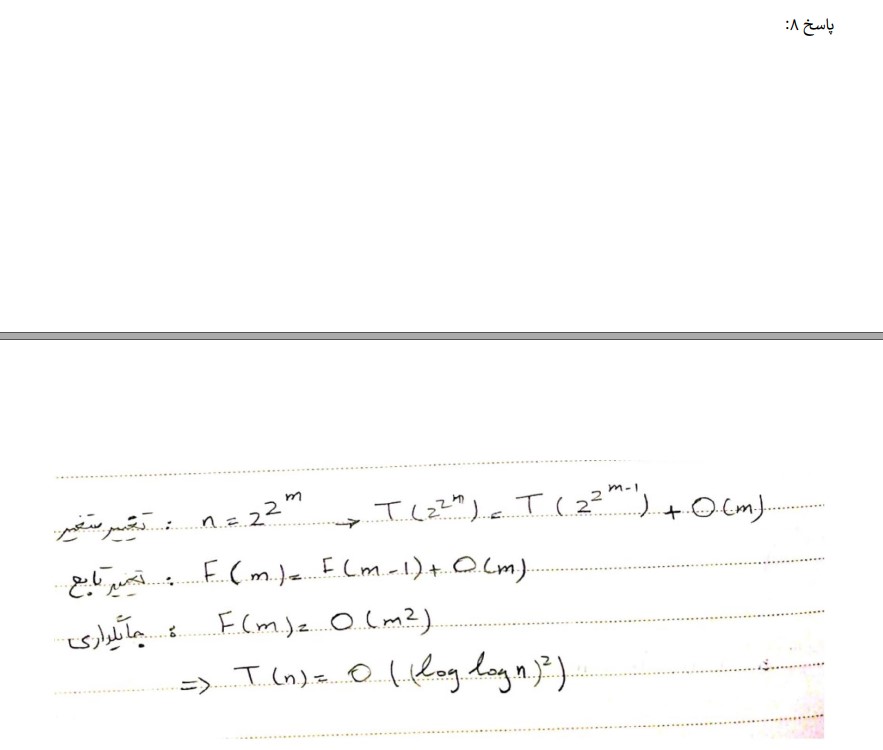 پاسخ ۸:
تغییر متغیر : n = 2^2^m → T(2^2^m) = T(2^2^m-1) + O(m)
تغییر تابع : F(m) = F(m-1) + O(m)
جایگذاری : F(m) = O(m^2)
=> T(n) = O((log log n)^2)